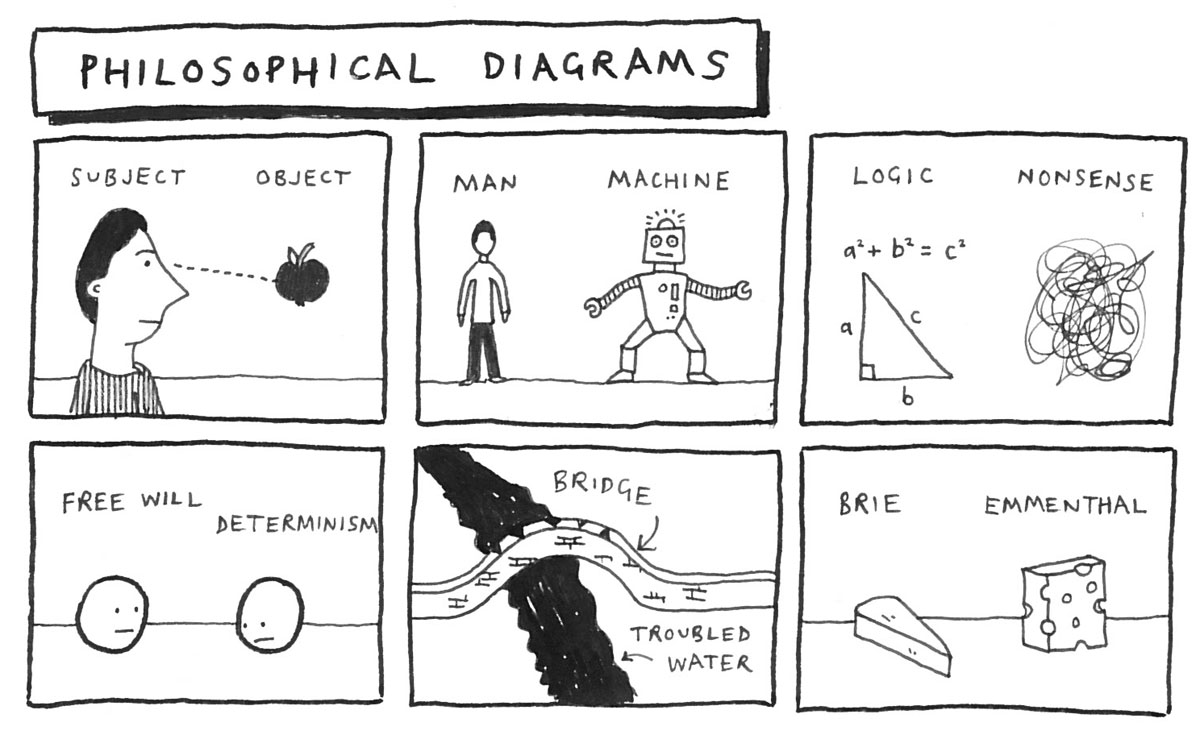 PHILOSOPHICAL DIAGRAMS
SUBJECT OBJECT
MAN MACHINE
LOGIC NONSENSE
a² + b² = c²
a
c
b
FREE WILL
DETERMINISM
BRIDGE
TROUBLED
WATER
BRIE EMMENTHAL